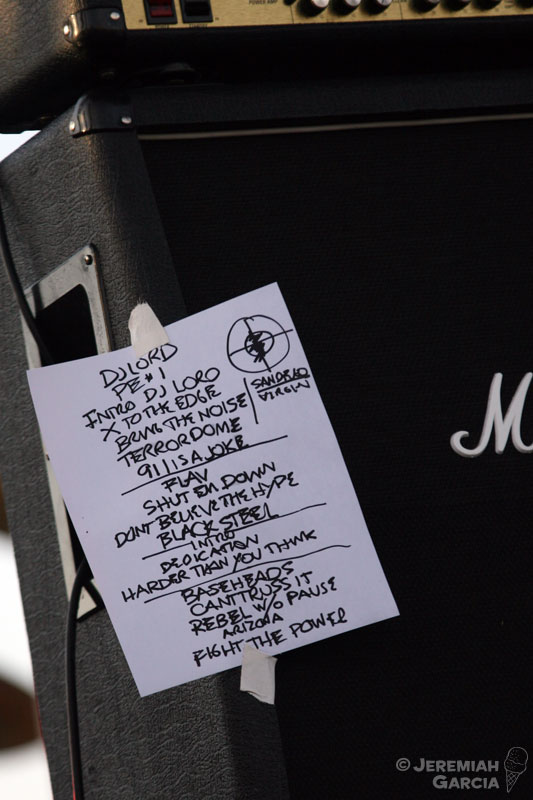 POWER AMP
DJ LORD
PE # 1
INTRO DJ LORD
X TO THE EDGE
BRING THE NOISE
TERRORDOME
911 IS A JOKE
SAN DIEGO
VIRGIN
FLAV
SHUT EM DOWN
DONT BELIEVE THE HYPE
BLACK STEEL
INTRO
DEDICATION
HARDER THAN YOU THINK
BASEHEADS
CANT TRUSS IT
REBEL W/O PAUSE
ARIZONA
FIGHT THE POWER
M
© JEREMIAH
GARCIA